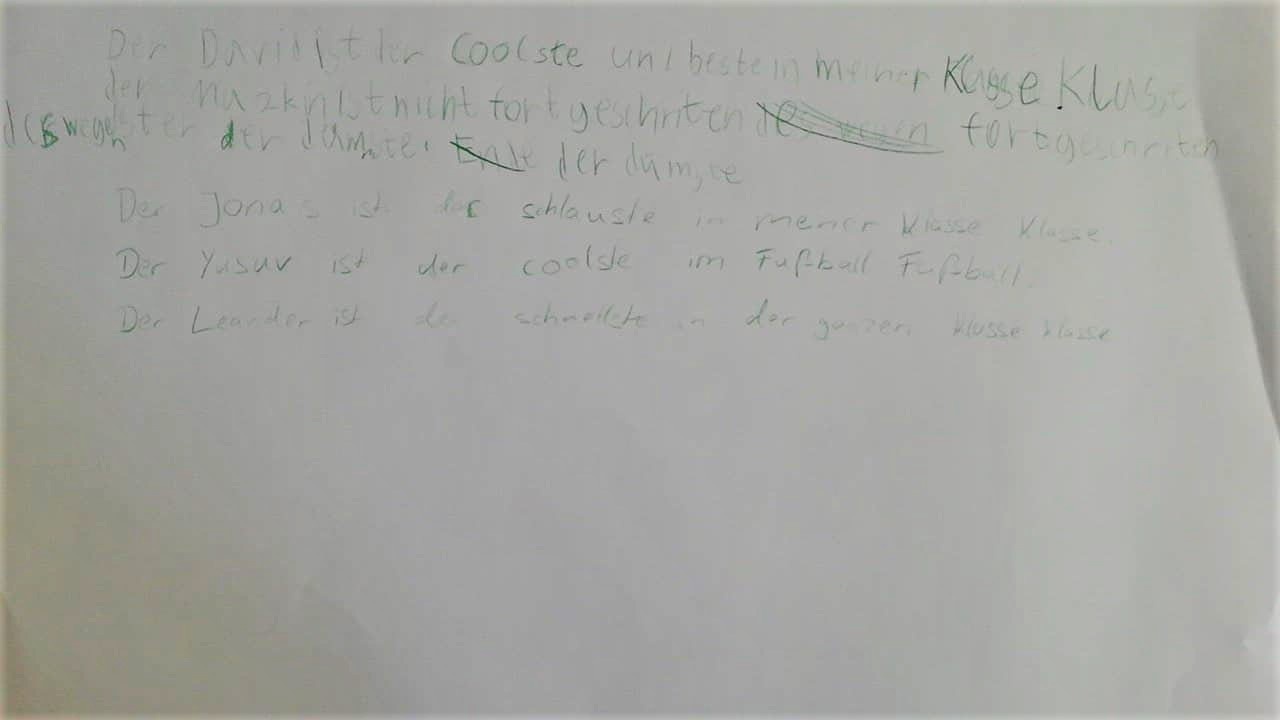 Der David ist der Coolste und beste in meiner Klasse Klasse
der ist nicht fortgeschriten fortgeschriten
deswegen ist er der dümste. der dümste
Der Jonas ist der schlauste in mener klasse Klasse.
Der Yusuv ist der coolste im Fußball Fußball.
Der Leander ist der schnellste in der ganzen klasse klasse